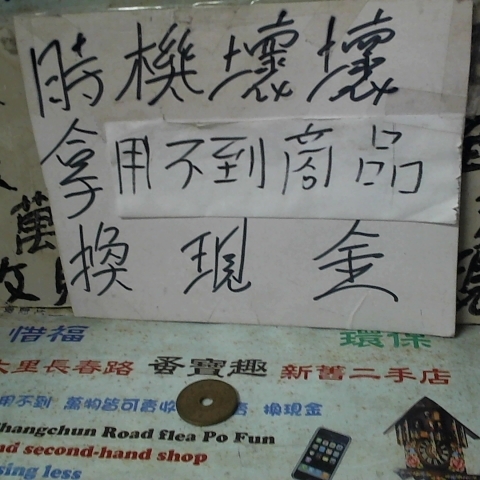 時機壞壞
拿用不到商品
換現金
萬
收
惜福 環保
大里長春路 蚤寶趣 新舊二手店
用不到 萬物皆可賣收 換現金
Changchun Road flea Po Fun
and second-hand shop
sing less